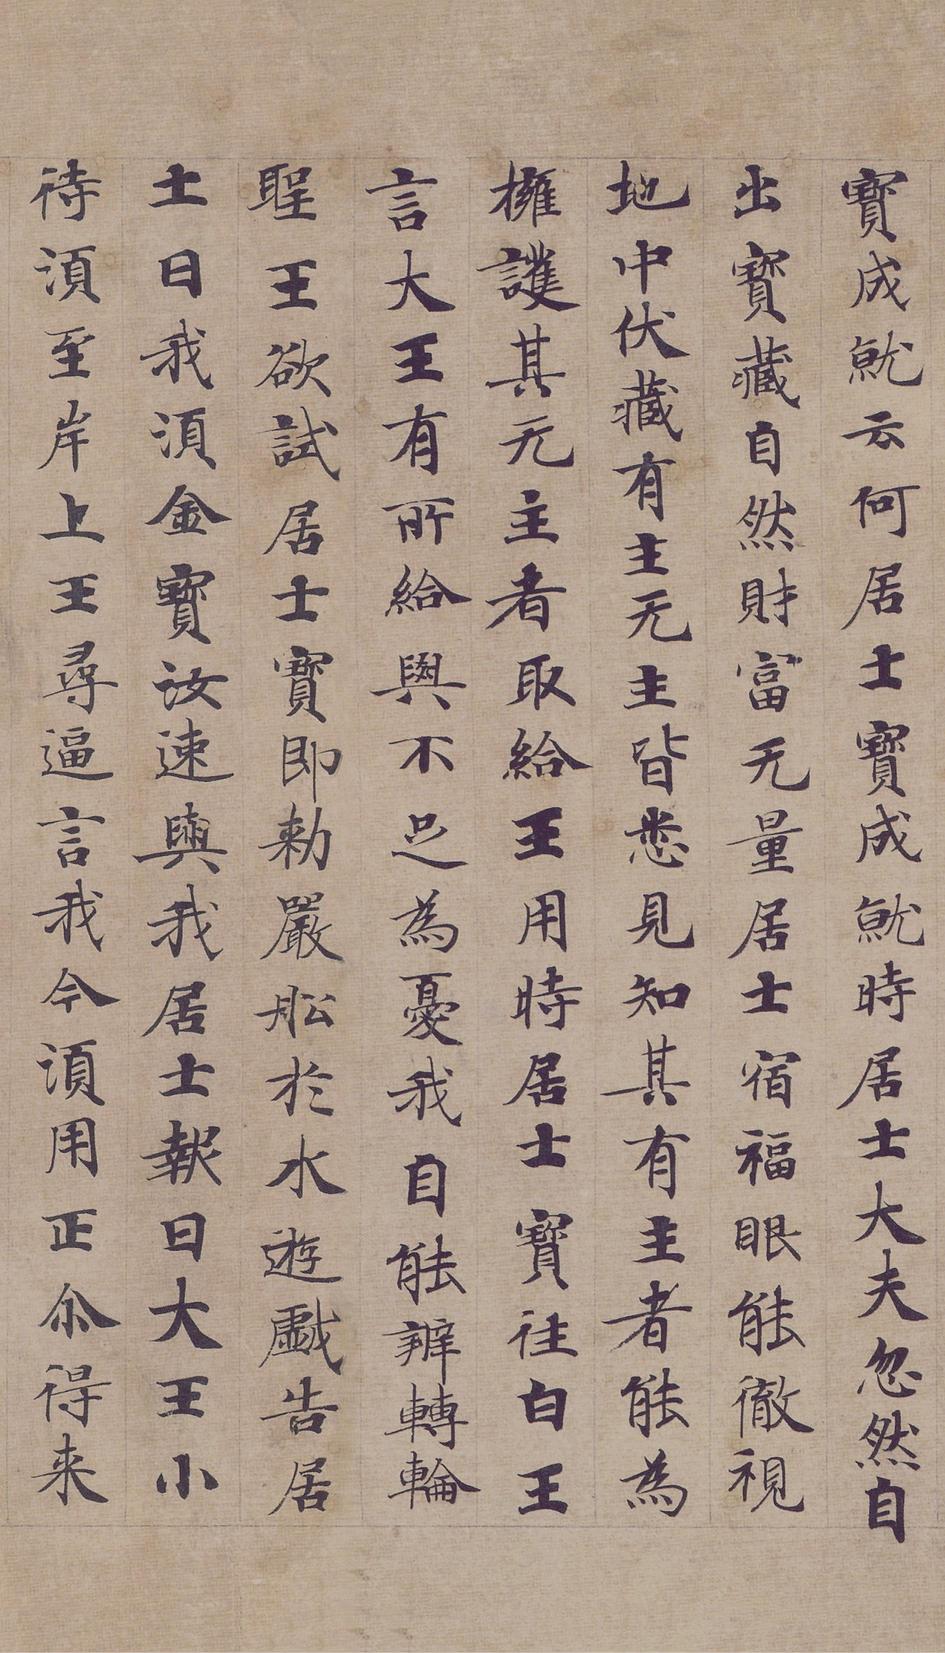 寶成就云何居士寶成就時居士大夫忽然自
出寶藏自然財富无量居士宿福眼能徹視
地中伏藏有主无主皆悉見知其有主者能為
擁護其无主者取給王用時居士寶往白王
言大王有所給與不足為憂我自能辦轉輪
聖王欲試居士寶即勑嚴舩於水遊戲告居
士曰我須金寶汝速與我居士報曰大王小
待須至岸上王尋逼言我今須用正尒得来